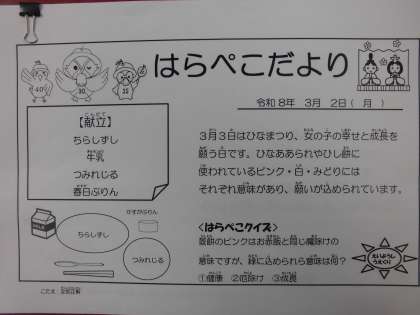 はらぺこだより
令和8年 3月 2日(月)
【献立】
ちらしずし
牛乳
つみれじる
春日ぷりん
3月3日はひなまつり、女の子の幸せと成長を
願う日です。ひなあられやひし餅に
使われているピンク・白・みどりには
それぞれ意味があり、願いが込められています。
<はらぺこクイズ>
菱餅のピンクはお赤飯と同じ魔除けの
意味ですが、緑に込められら意味は何?
①健康 ②厄除け ③成長
かすがぷりん
ちらしずし
つみれじる
えいようし